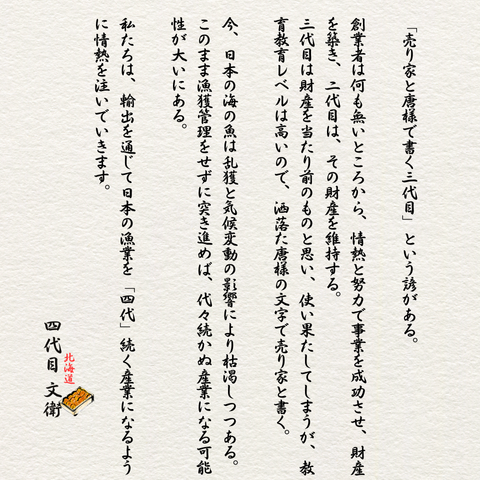 「売り家と唐様で書く三代目」という諺がある。
創業者は何も無いところから、情熱と努力で事業を成功させ、財産
を築き、二代目は、その財産を維持する。
三代目は財産を当たり前のものと思い、使い果たしてしまうが、教
育教育レベルは高いので、洒落た唐様の文字で売り家と書く。
今、日本の海の魚は乱獲と気候変動の影響により枯渇しつつある。
このまま漁獲管理をせずに突き進めば、代々続かぬ産業になる可能
性が大いにある。
私たちは、輸出を通じて日本の漁業を「四代」続く産業になるよう
に情熱を注いでいきます。
北海道
四代目 文衛